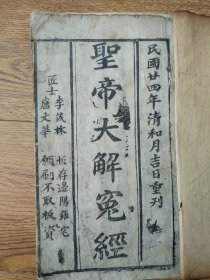 民國廿四年清和月吉日重刊
聖帝大解冤經
匠士 李茂林 盧文華
板存邊陽羅宅
願刷不取板資